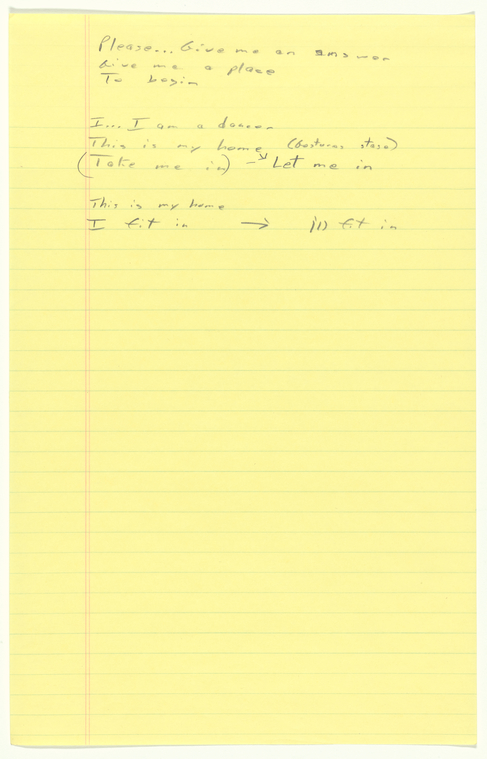 Please... Give me an answer
Give me a place
To begin
I... I am a dancer
This is my home (gestures stage)
(Take me in) → Let me in
This is my home
I fit in → I'll fit in